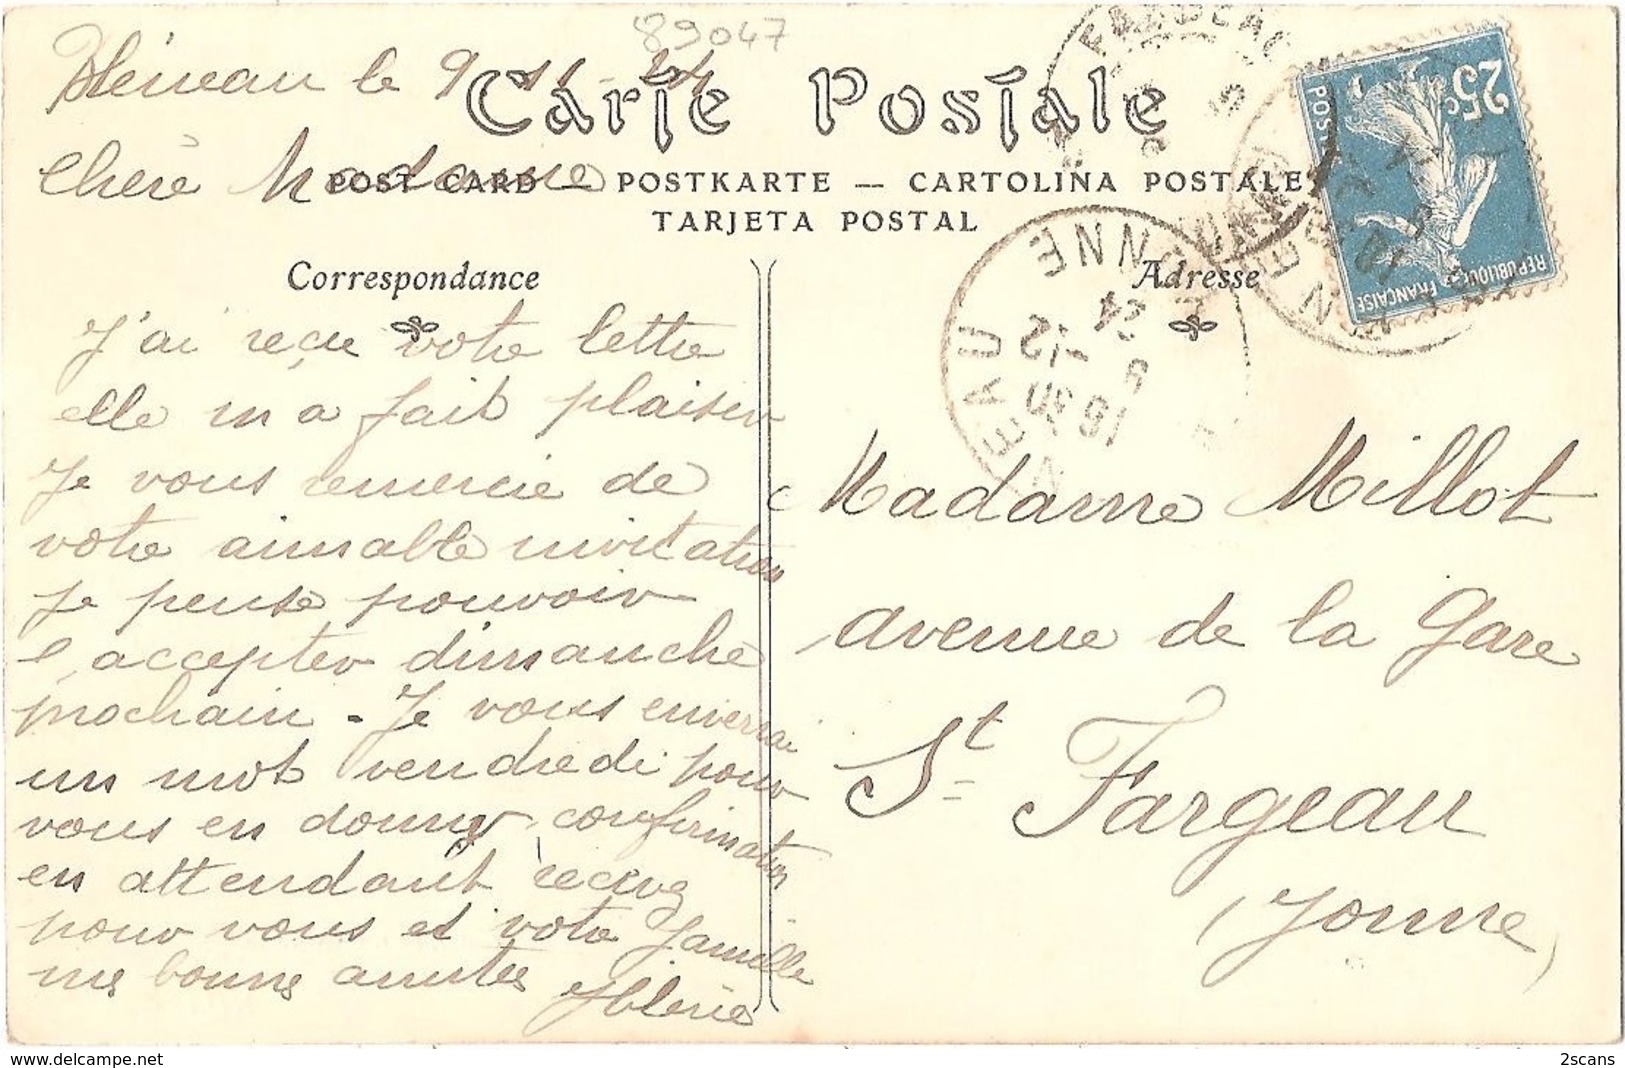 89047
Bléneau le 9
Carte Postale
Chère Madame
POST CARD — POSTKARTE — CARTOLINA POSTALE
TARJETA POSTAL
Correspondance
J'ai reçu votre lettre
elle m a fait plaisir
Je vous remercie de
votre aimable invitation
Je pense pouvoir
l accepter dimanche
prochain - Je vous enverrai
un mot vendredi pour
vous en donner confirmation
en attendant recevez
pour vous et votre famille
mes bonnes amitiés
Adresse
Madame Millot
avenue de la gare
St Fargeau
(Yonne)
25c
POSTES
REPUBLIQUE FRANÇAISE
FARGEAU
YONNE
NEAU
YONNE
16 30
9 -12
24
delcampe.net
2scans